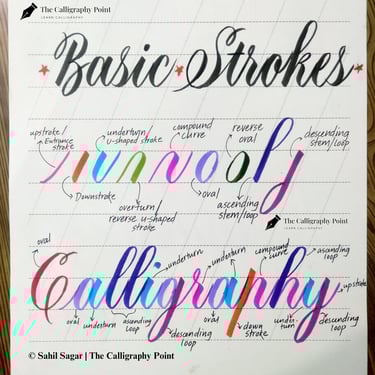 The Calligraphy Point
LEARN CALLIGRAPHY
Basic Strokes
upstroke/ Entrance stroke
underturn/ u-shaped stroke
compound curve
reverse oval
descending stem/loop
Downstroke
overturn/ reverse u-shaped stroke
oval
ascending stem/loop
The Calligraphy Point
LEARN CALLIGRAPHY
oval
underturn
underturn
compound curve
ascending loop
Calligraphy
upstroke
oval
underturn
ascending loop
descending loop
oval
down stroke
under- turn
descending loop
© Sahil Sagar | The Calligraphy Point